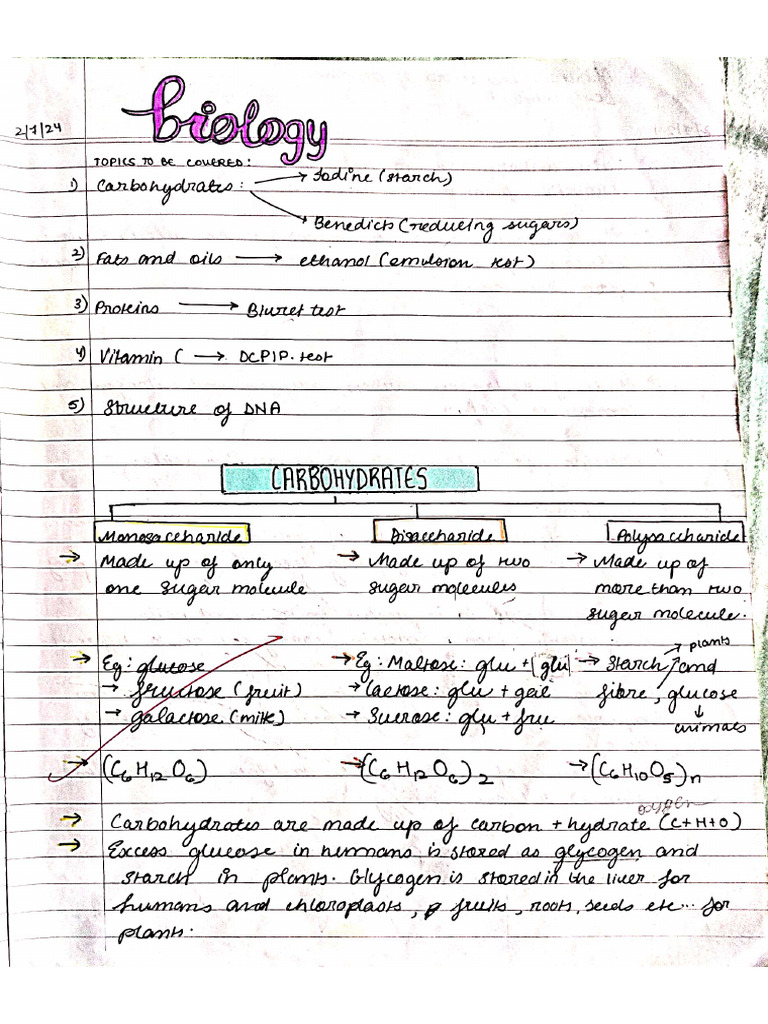 biology
2/7/24
TOPICS TO BE COVERED:
1) Carbohydrates: → Iodine (starch)
→ Benedicts (reducing sugars)
2) Fats and oils → ethanol (emulsion test)
3) Proteins → Biuret test
4) Vitamin C → DCPIP test
5) Structure of DNA
CARBOHYDRATES
Monosaccharide Disaccharide Polysaccharide
→ Made up of only → Made up of two → Made up of
one sugar molecule sugar molecules more than two
sugar molecule.
→ plants
→ Eg: glucose → Eg: Maltose: glu + glu → Starch, and
→ fructose (fruit) → lactose: glu + gal fibre, glucose
→ galactose (milk) → Sucrose: glu + fru ↓
animals
→ (C6H12O6) → (C6H12O6)2 → (C6H10O5)n
oxygen
→ Carbohydrates are made up of carbon + hydrate (C+H+O)
→ Excess glucose in humans is stored as glycogen and
starch in plants. Glycogen is stored in the liver for
humans and chloroplasts, fruits, roots, seeds etc... for
plants.